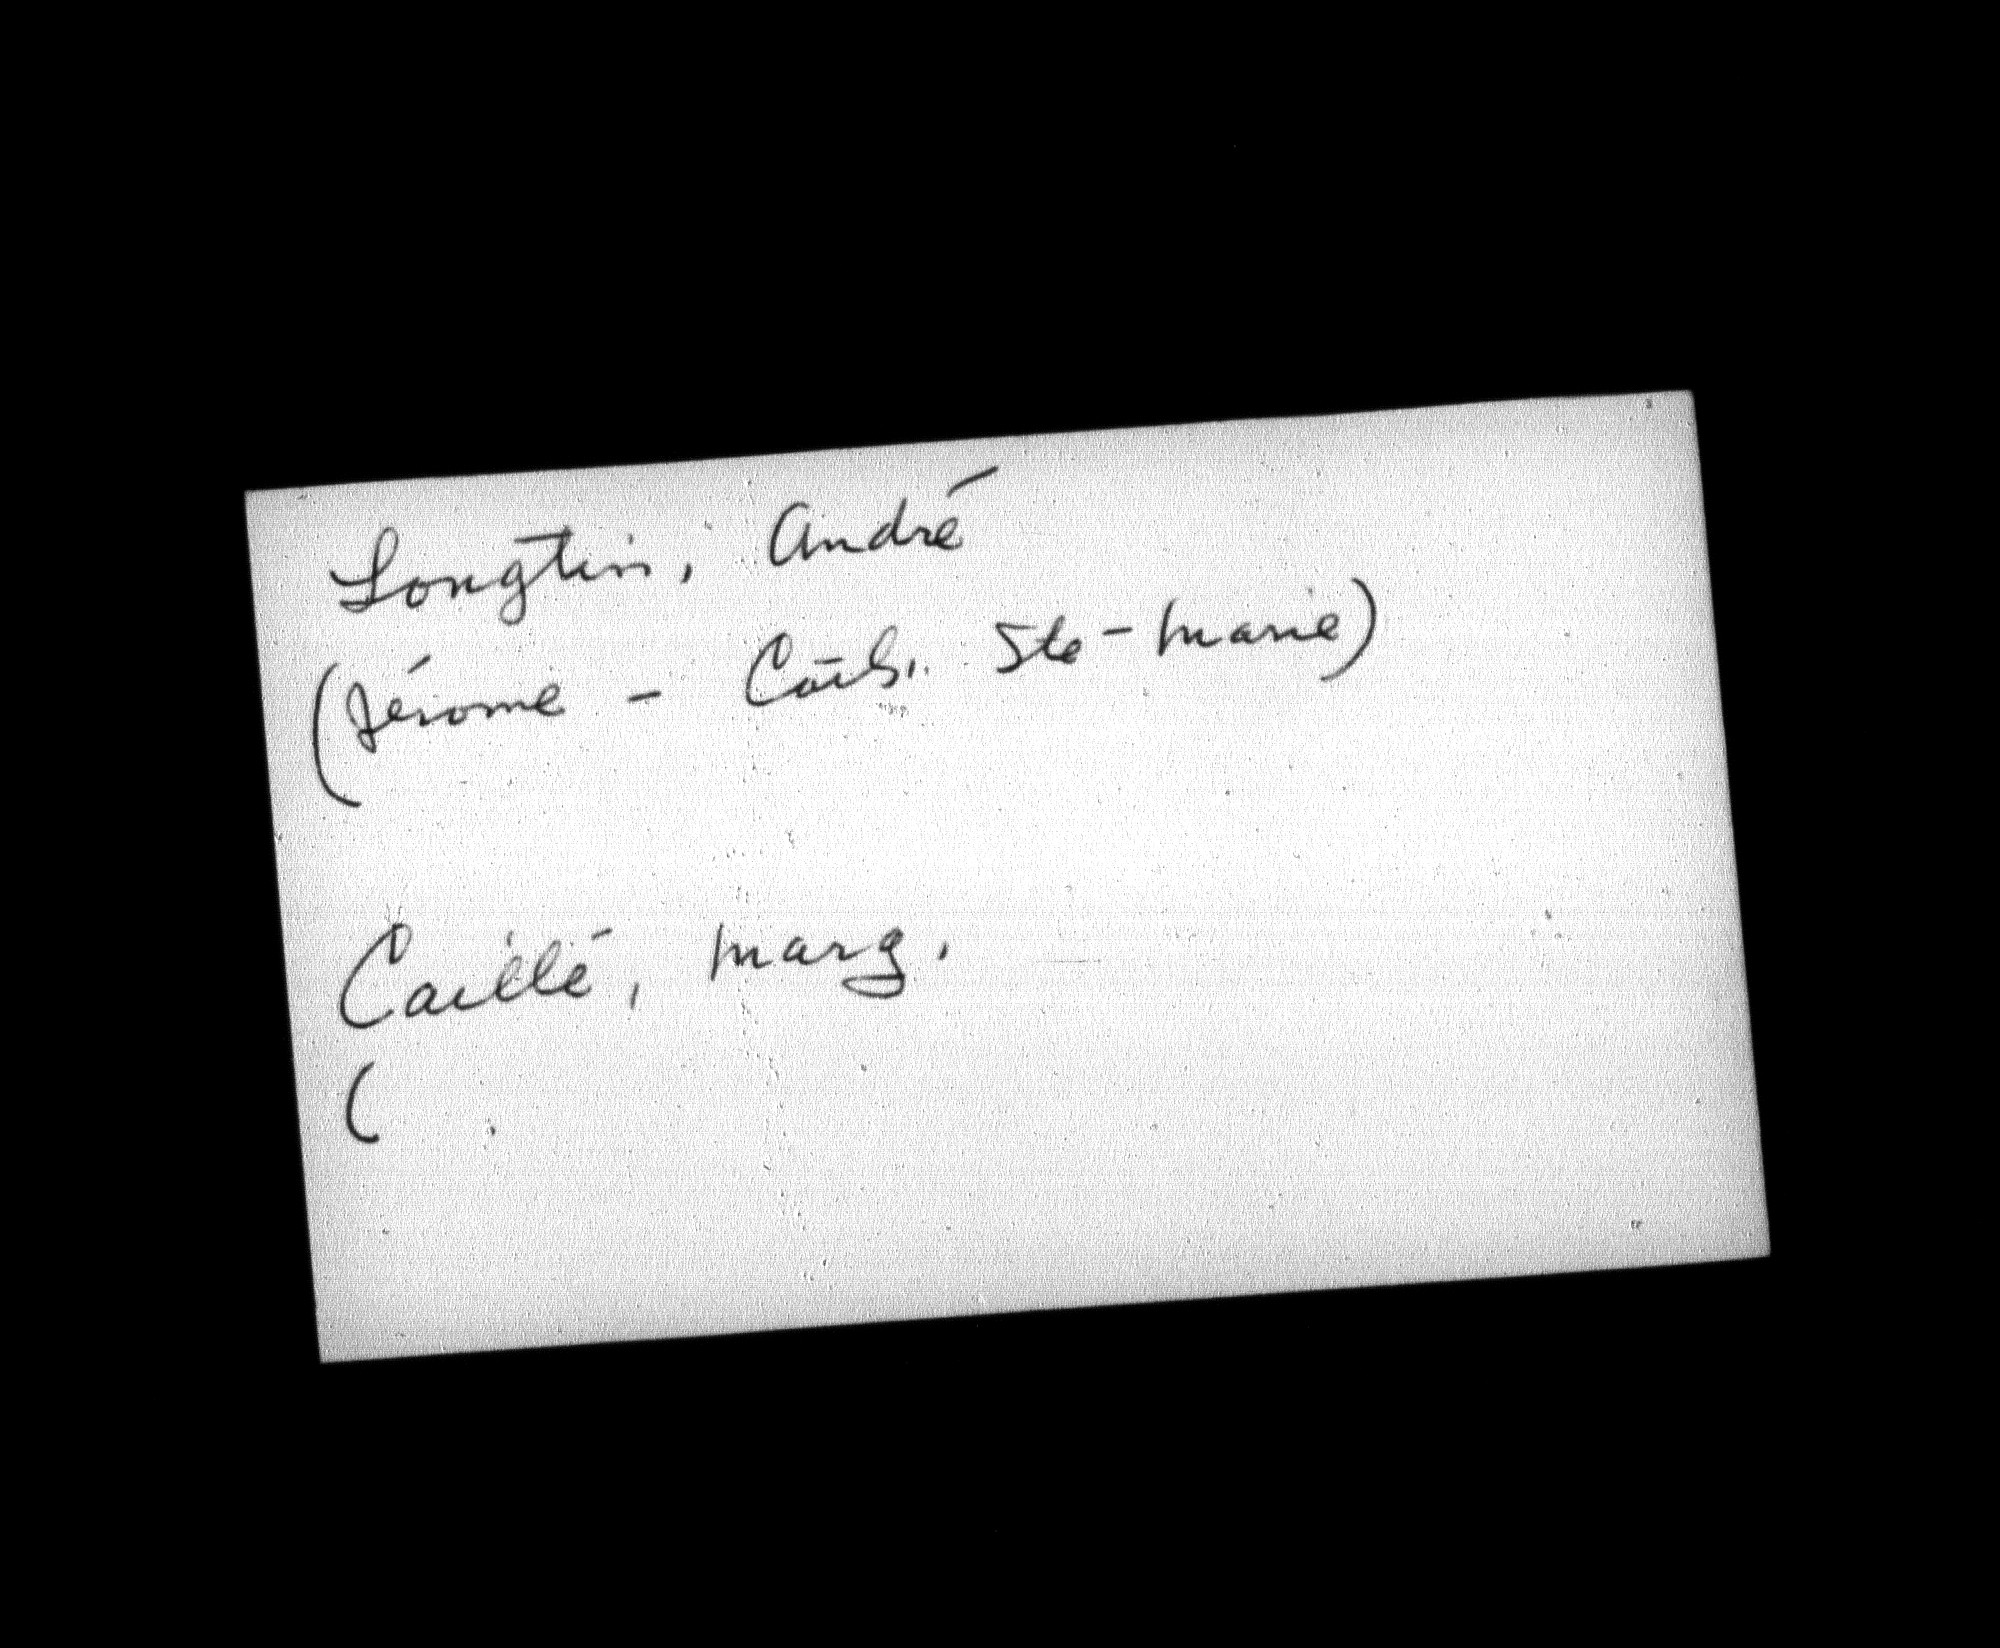 Longtin, André
(Jérome - Cath. Ste-Marie)
Caillé, Marg.
(